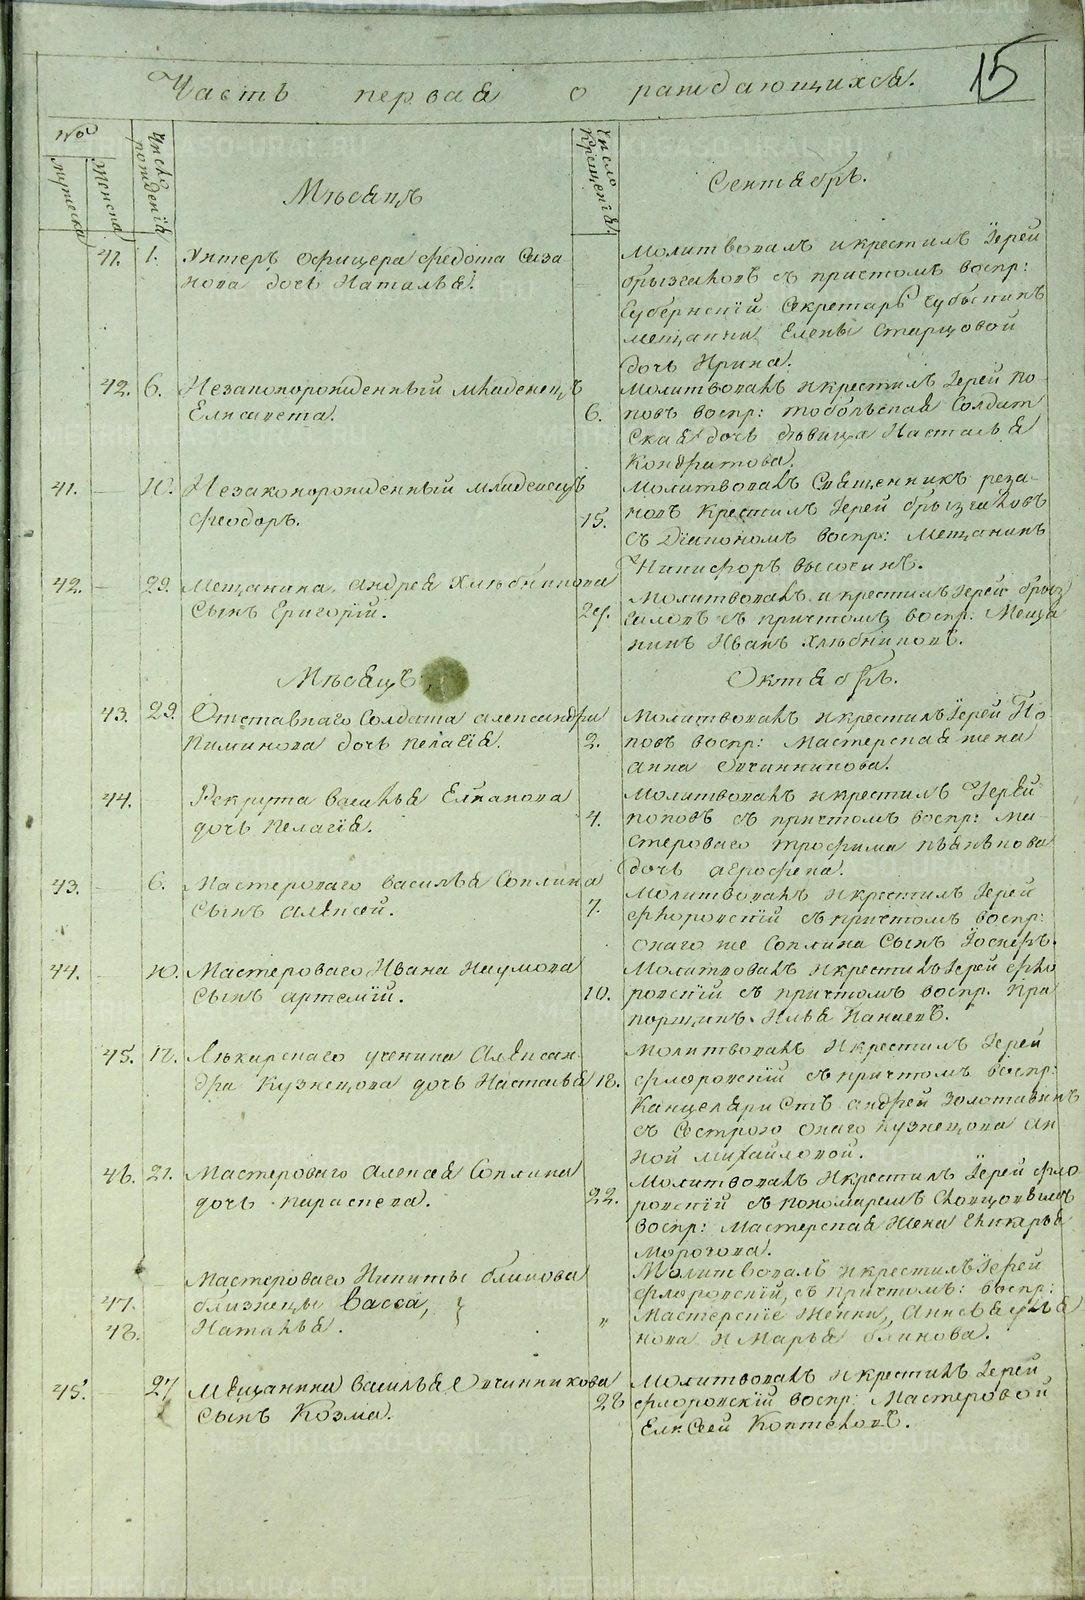 Часть первая о раждающихся.
15
№
мужеска
женска
число рождения
число крещения
Мѣсяцъ
Сентябрь.
41. 1. Унтеръ офицера Федота Сиза
нова дочь Наталья.
Молитвовалъ и крестилъ Iерей
Брызгаловъ съ причтомъ воспр:
Губернскiй Секретарь
мещанки Елены Старцовой
дочь Ирина.
42. 6. Незаконорожденный младенецъ
Елисавета.
6.
Молитвовалъ и крестилъ Iерей По
повъ воспр: тобольская Солдат
ская дочь дѣвица Насталья
Кондратова.
41. 10. Незаконорожденный младенецъ
Феодоръ.
15.
Молитвовалъ Священникъ реза-
новъ крестилъ Iерей брызгаловъ
съ Дiакономъ воспр: мещанинъ
Никифоръ высочинъ.
42. 29. Мещанина Андрея Хлѣбникова
сынъ Григорiй.
29.
Молитвовалъ и крестилъ Iерей брыз
галовъ съ причтомъ воспр. Меща
нинъ Иванъ Хлѣбниковъ.
Мѣсяцъ
Октябрь.
43. 29. Отставнаго Солдата александра
Пиминова дочь пелагiя.
2.
Молитвовалъ и крестилъ Iерей По
повъ воспр: мастерская жена
анна Овчинникова.
44. Рекрута василья Елпанова
дочь Пелагiя.
4.
Молитвовалъ и крестилъ Iерей
поповъ съ причтомъ воспр: ма
стероваго трофима пьянкова
дочь агрофена.
43. 6. Мастероваго василья Соплина
сынъ алексей.
7.
Молитвовалъ и крестилъ Iерей
флоровскiй съ причтомъ воспр:
онаго же Соплина Сынъ Iосифъ.
44. 10. Мастероваго Ивана Наумова
сынъ артемiй.
10.
Молитвовалъ и крестилъ Iерей фло
ровскiй съ причтомъ воспр. пра
порщикъ Илья Панаевъ.
45. 12. Лѣкарскаго ученика Алексан-
дра Кузнецова дочь Насталья
12.
Молитвовалъ и крестилъ Iерей
флоровскiй съ причтомъ воспр:
Канцеляристъ андрей Золотавинъ
съ Сестрою онаго Кузнецова ан
ной михайловой.
46. 21. Мастероваго алексая Соплина
дочь параскева.
22.
Молитвовалъ и крестилъ Iерей фло
ровскiй съ пономаремъ
воспр: мастерская жена Гликарья
морозова.
Мастероваго Никиты блинова
47. близнецы Васса,
48. Наталья.
"
Молитвовалъ и крестилъ Iерей
флоровскiй, съ причтомъ: воспр:
мастерскiе Женки,
нова и Марья блинова.
45. 27 Мещанина Василья Овчинникова
сынъ Козма.
28
Молитвовалъ и крестилъ Iерей
флоровскiй воспр: Мастеровой
Елисей Коптеловъ.